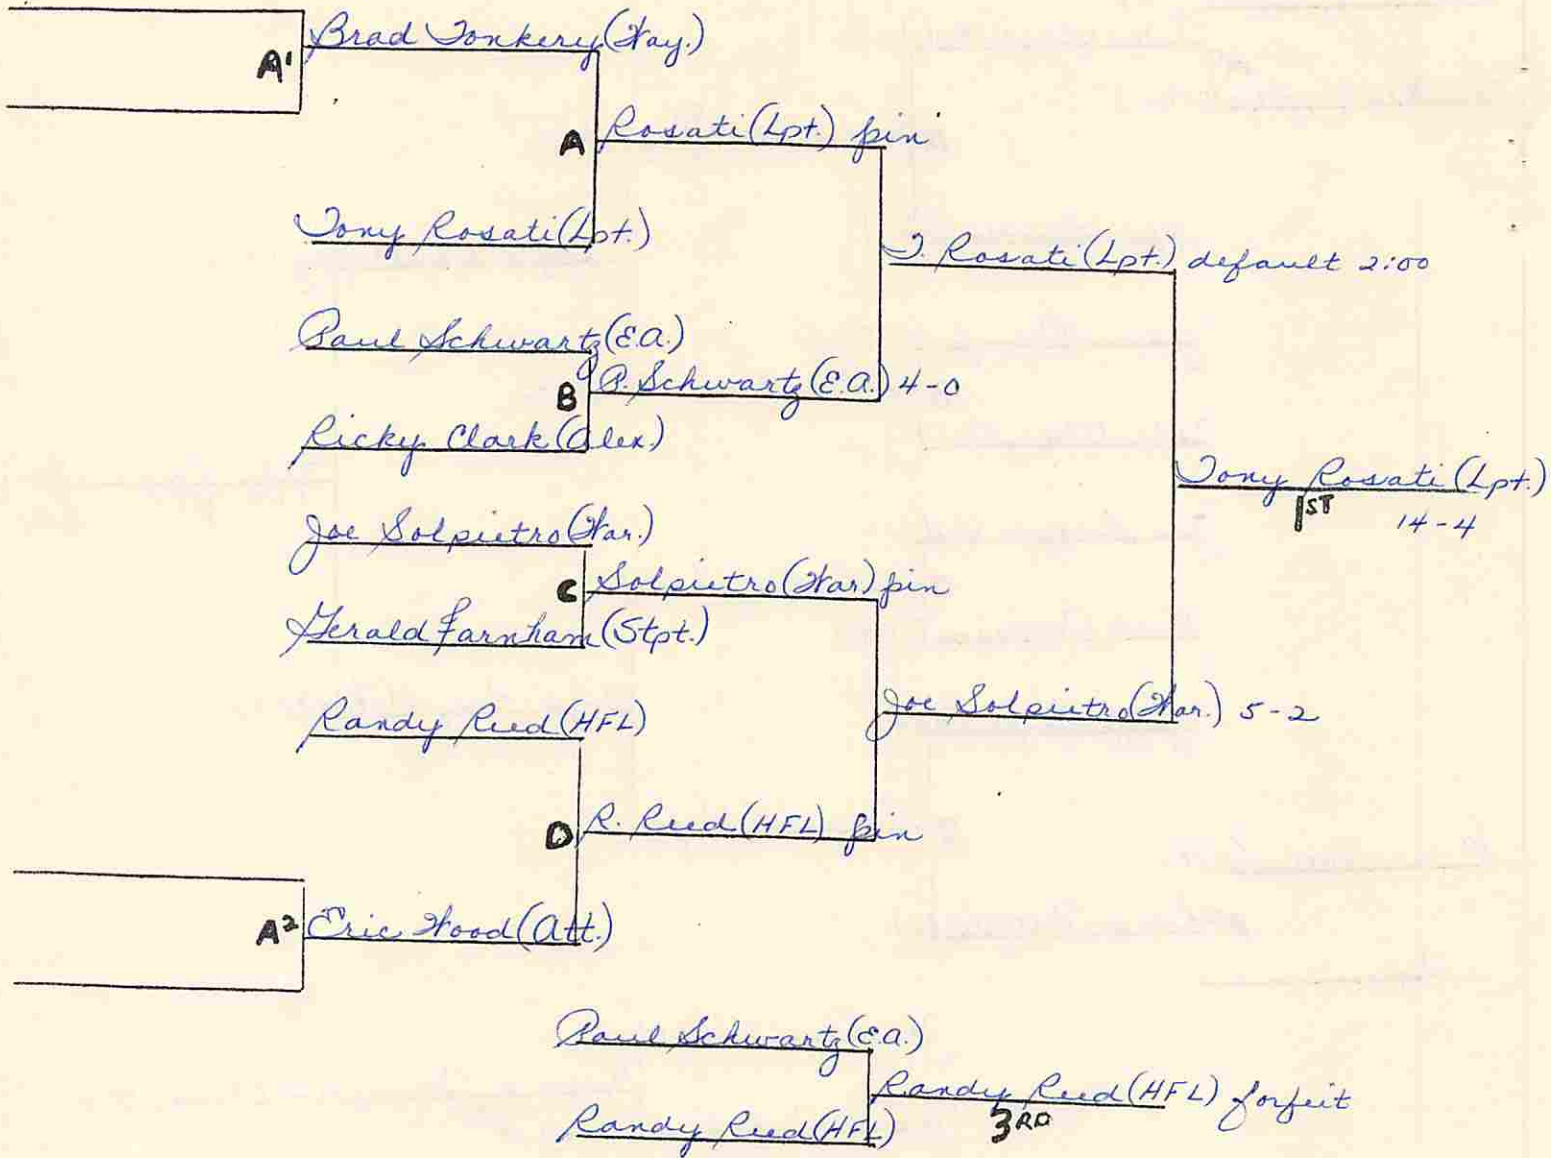 Brad Tonkery (Way.)
A¹
Rosati (Lpt.) pin
A
Tony Rosati (Lpt.)
T. Rosati (Lpt.) default 2:00
Paul Schwartz (E.A.)
B
P. Schwartz (E.A.) 4-0
Ricky Clark (Alex.)
Tony Rosati (Lpt.)
1ST 14-4
Joe Solpietro (War.)
C
Solpietro (War) pin
Gerald Farnham (Stpt.)
Randy Reed (HFL)
Joe Solpietro (War.) 5-2
D
R. Reed (HFL) pin
A²
Eric Wood (Att.)
Paul Schwartz (E.A.)
Randy Reed (HFL) forfeit
3RD
Randy Reed (HFL)